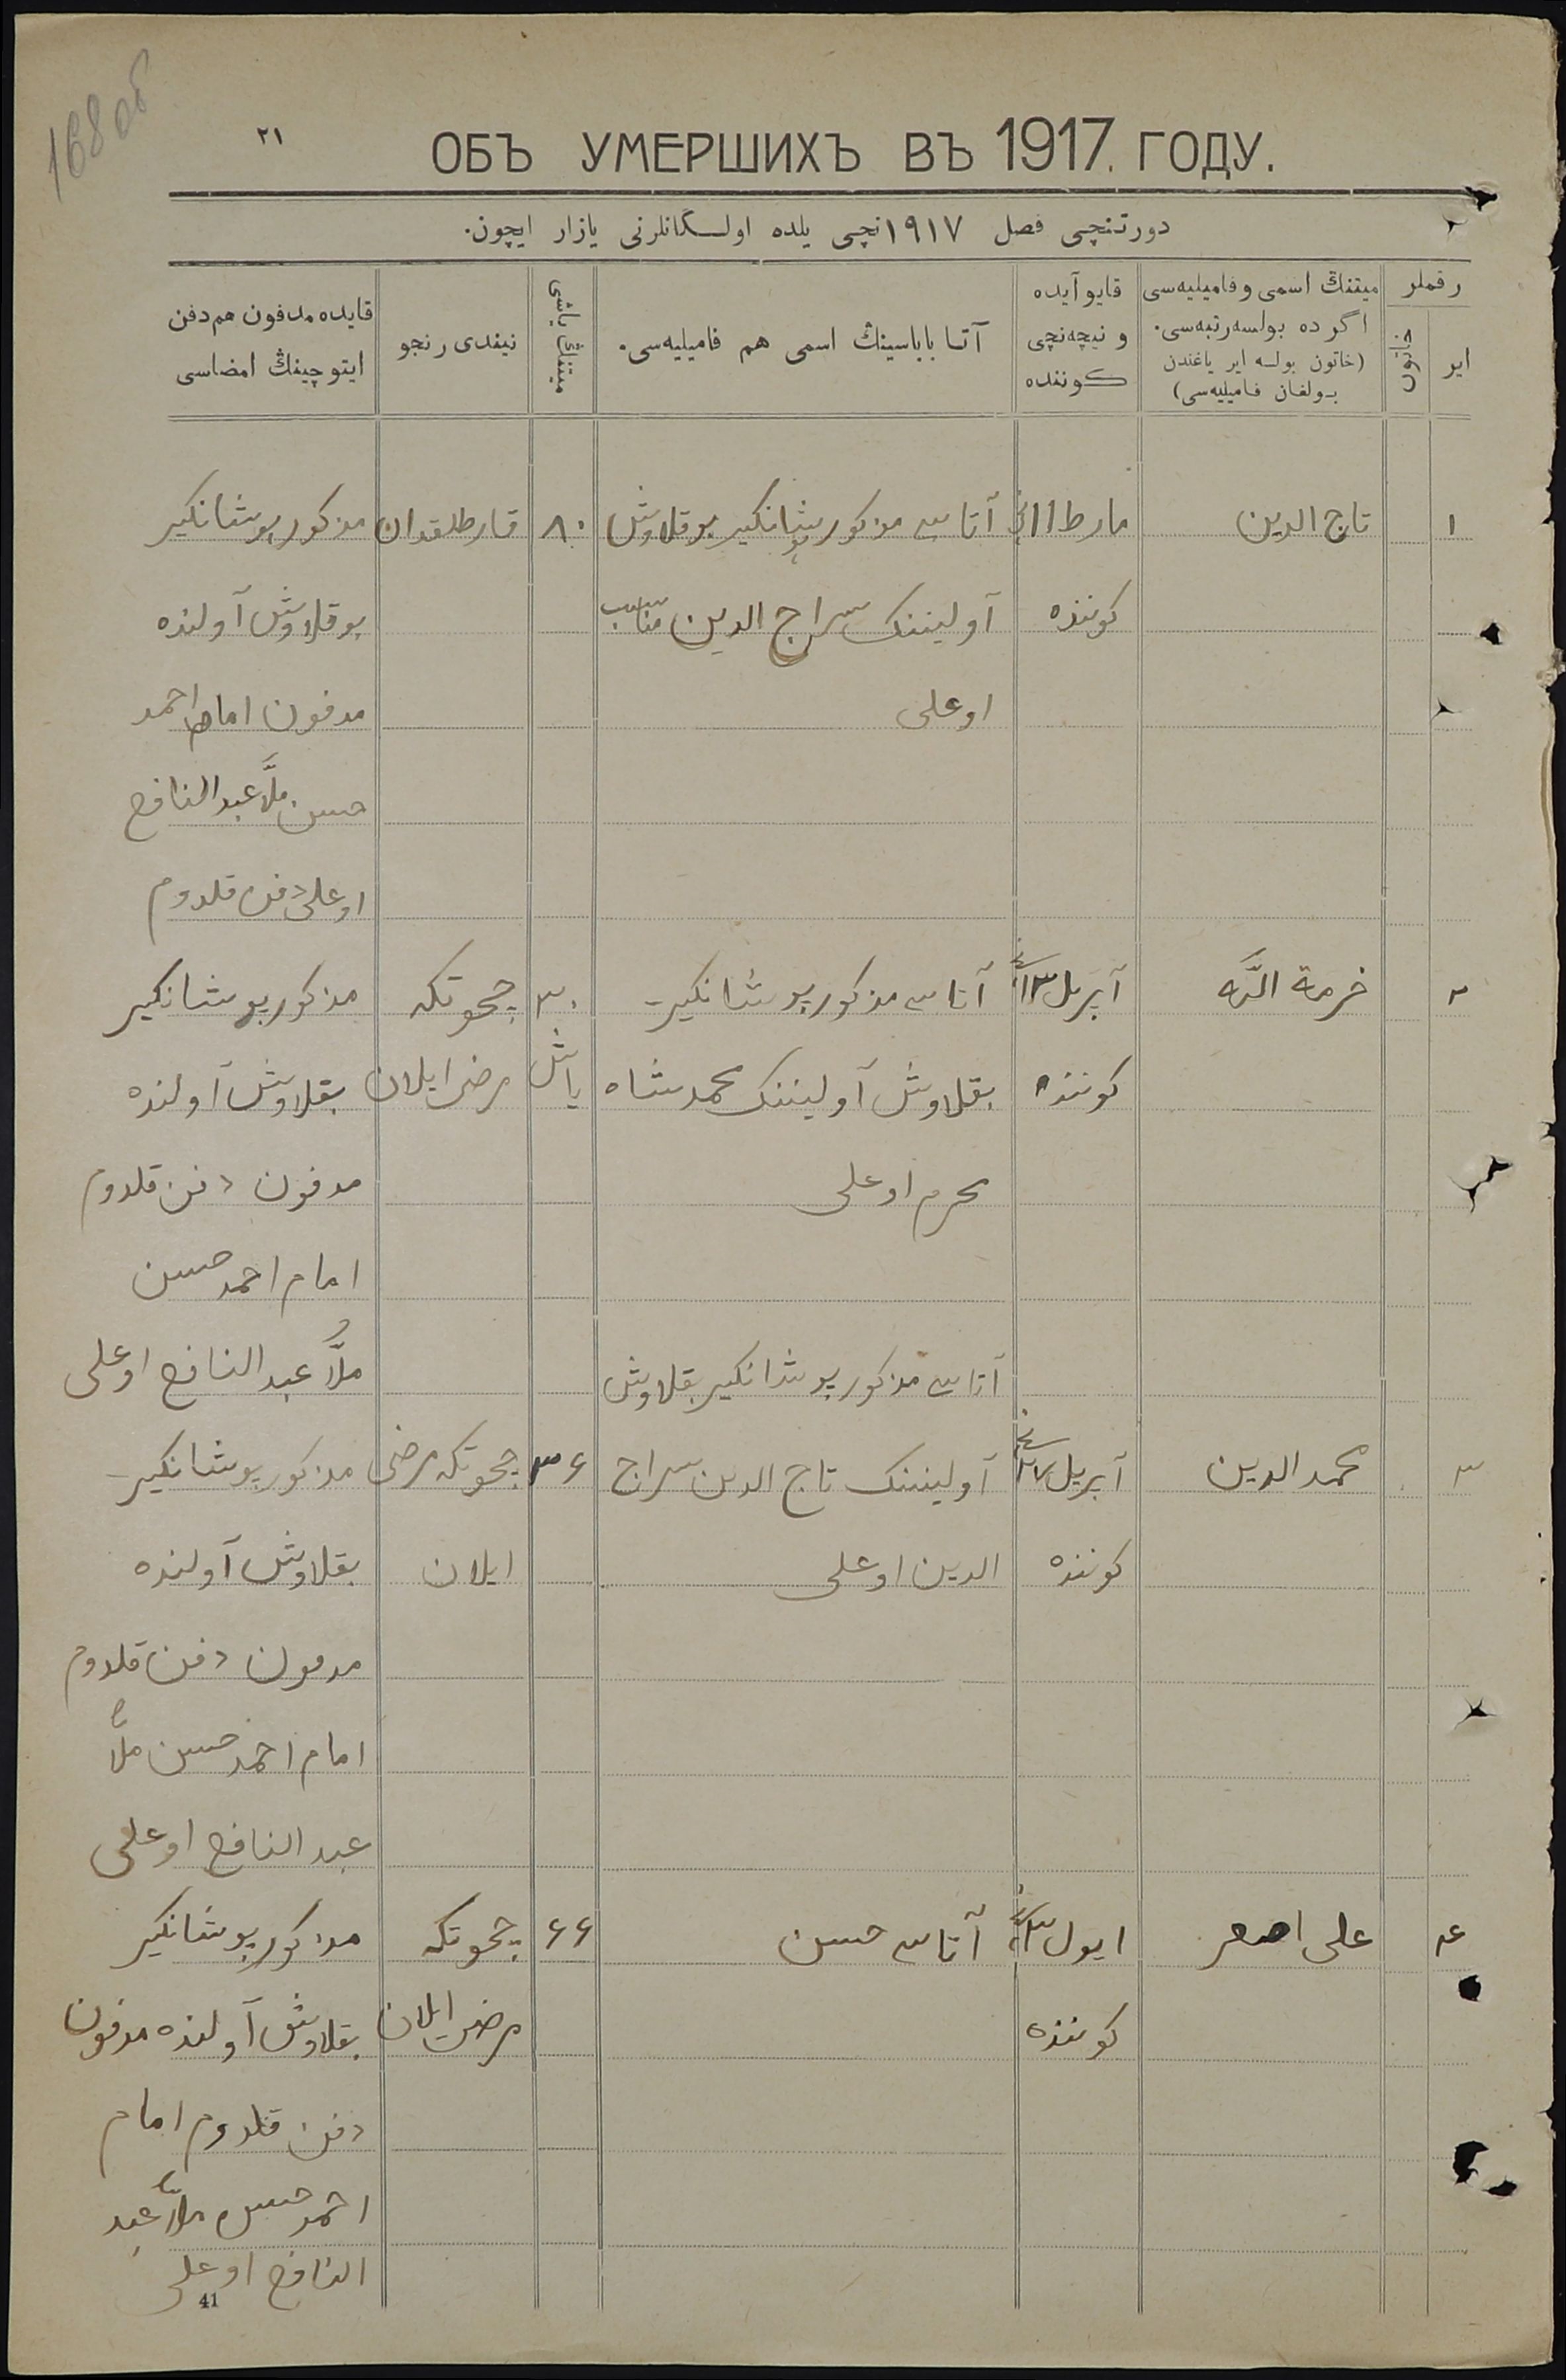 168 об
٢١
ОБЪ УМЕРШИХЪ ВЪ 1917. ГОДУ.
دورتنچی فصل ١٩١٧ نچی یلده اولـگانلرنی یازار ایچون.
رقملر
ایر
خاتون
میتنڭ اسمی وفامیلیه‌سی
اگرده بولسه رتبه‌سی.
(خاتون بولسه ایر یاغندن
بولغان فامیلیه‌سی)
قایو آیده
و نیچه‌نچی
کوننده
آتا باباسینڭ اسمی هم فامیلیه‌سی.
میتنڭ یاشی
نیندی رنجو
قایده مدفون هم دفن
ایتوچینڭ امضاسی
١
تاج الدین
مارط ١١نچی
کوننده
آتاسی مذکور بوشانکیر بوقلاوش
آولیننک سراج الدین
اوغلی
٨٠
قارطلقدان
مذکور بوشانکیر
بوقلاوش آولنده
مدفون امام احمد
حسن ملّا عبدالنافع
اوغلی دفن قلدوم
٢
خرمة اللّه
آپریل ١٣نچی
کوننده
آتاسی مذکور بوشانکیر
بقلاوش آولیننک محمدشاه
محرم اوغلی
٣٠
یاش
چحوتکه
مرضی ایلان
مذکور بوشانکیر
بقلاوش آولنده
مدفون دفن قلدوم
امام احمد حسن
ملّا عبدالنافع اوغلی
٣
محمد الدین
آپریل ٢٧نچی
کوننده
آتاسی مذکور بوشانکیر بقلاوش
آولیننک تاج الدین سراج
الدین اوغلی
٣۶
چحوتکه مرضی
ایلان
مذکور بوشانکیر
بقلاوش آولنده
مدفون دفن قلدوم
امام احمد حسن ملّا
عبدالنافع اوغلی
۴
علی اصغر
ایول
کوننده
آتاسی حسن
۶۶
چحوتکه
مرضی ایلان
مذکور بوشانکیر
بقلاوش آولنده مدفون
دفن قلدوم امام
احمد حسن ملّا عبد
النافع اوغلی
41